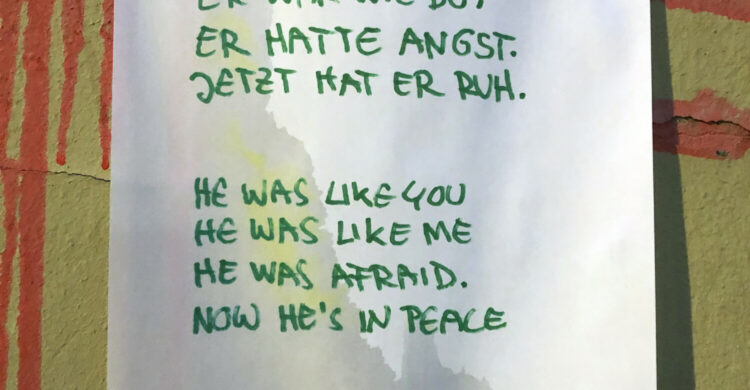 ER WAR WIE DU.
ER HATTE ANGST.
JETZT HAT ER RUH.
HE WAS LIKE YOU
HE WAS LIKE ME
HE WAS AFRAID.
NOW HE'S IN PEACE